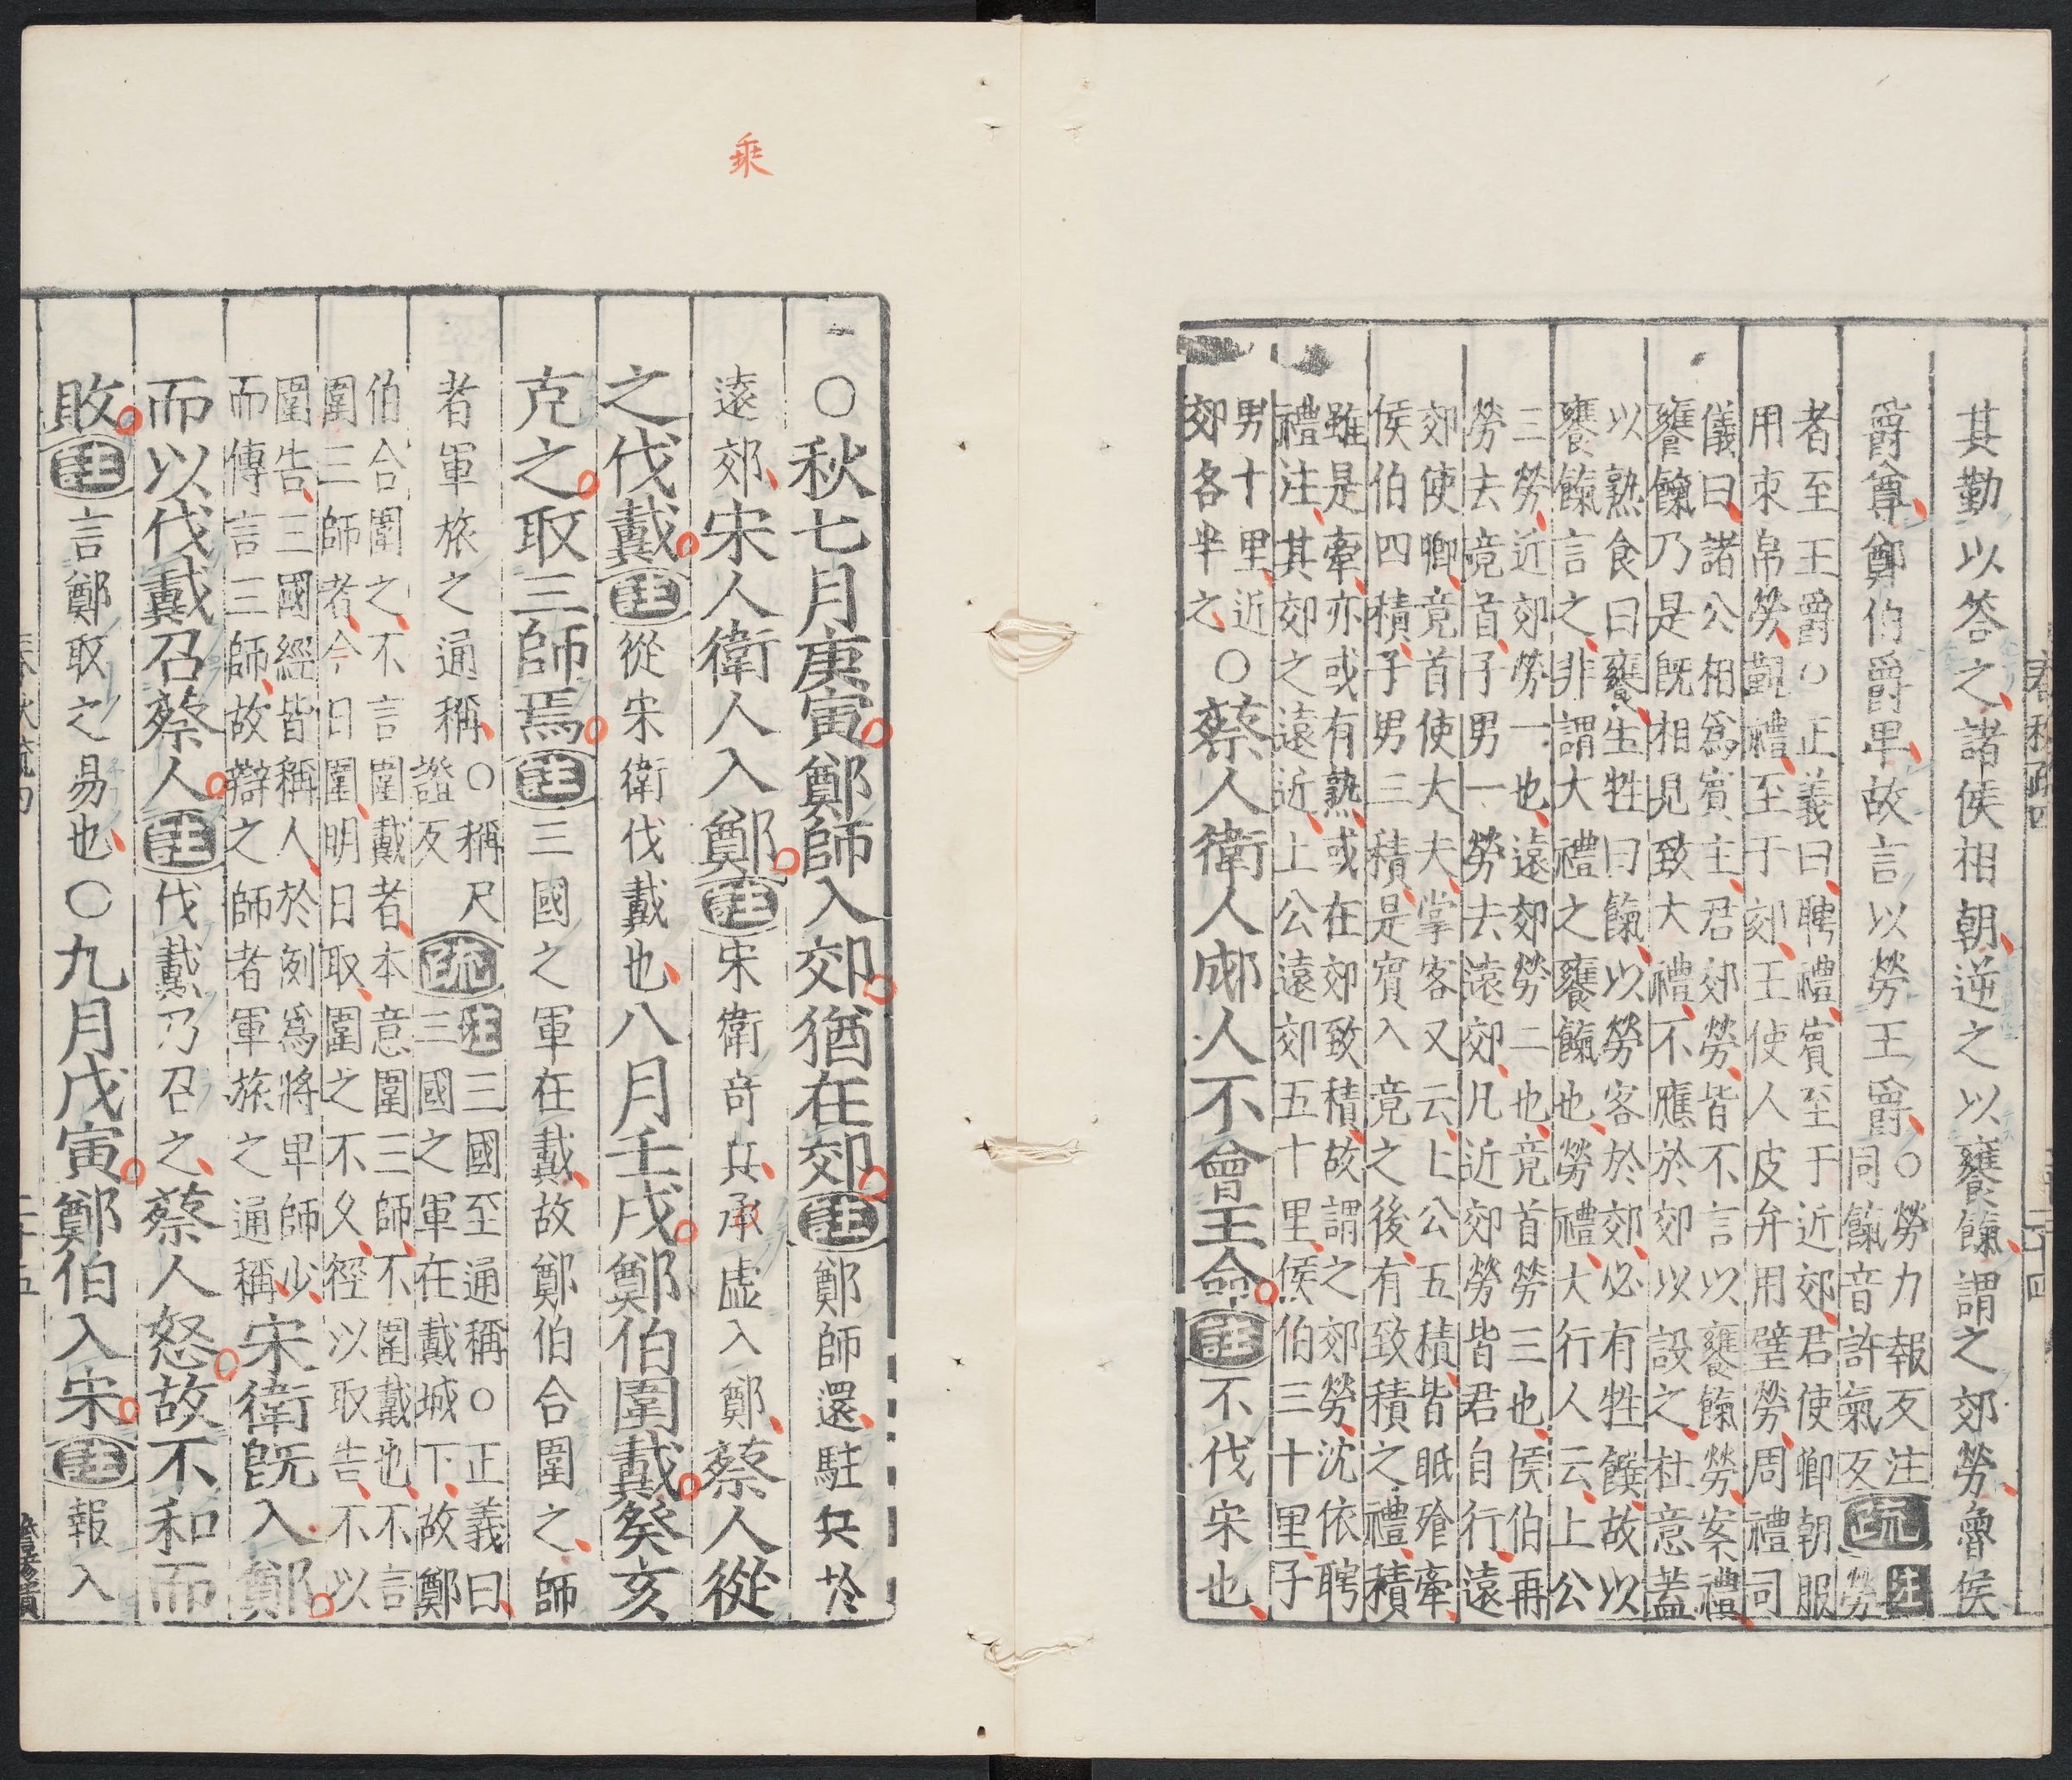 春秋疏四 二十四
其勤以答之諸侯相朝逆之以饔餼謂之郊勞魯侯
爵尊鄭伯爵卑故言以勞王爵
○勞力報反注
同餼音許氣反
疏
注
勞
者至王爵○正義曰聘禮賓至于近郊君使卿朝服
用束帛勞覲禮至于郊王使人皮弁用璧勞周禮司
儀曰諸公相爲賓主君郊勞皆不言以饔餼勞案禮
饔餼乃是既相見致大禮不應於郊以設之杜意蓋
以熟食曰饔生牲曰餼以勞客於郊必有牲饌故以
饔餼言之非謂大禮之饔餼也勞禮大行人云上公
三勞近郊勞一也遠郊勞二也竟首勞三也侯伯再
勞去竟首子男一勞去遠郊凡近郊勞皆君自行遠
郊使卿竟首使大夫掌客又云上公五積皆眡飧牽
侯伯四積子男三積是賓入竟之後有致積之禮積
雖是牽亦或有熟或在郊致積故謂之郊勞沈依聘
禮注其郊之遠近上公遠郊五十里侯伯三十里子
男十里近
郊各半之
○蔡人衛人郕人不會王命註不伐宋也
乘
○秋七月庚寅鄭師入郊猶在郊註鄭師還駐兵於
遠郊宋人衛人入鄭註宋衛奇兵承虛入鄭蔡人從
之伐戴註從宋衛伐戴也八月壬戌鄭伯圍戴癸亥
克之取三師焉註三國之軍在戴故鄭伯合圍之師
者軍旅之通稱
○稱尺
證反
疏
注三國至通稱○正義曰
三國之軍在戴城下故鄭
伯合圍之不言圍戴者本意圍三師不圍戴也不言
圍三師者今日圍明日取圍之不久徑以取告不以
圍告三國經皆稱人於例爲將卑師少
而傳言三師故辯之師者軍旅之通稱
宋衛既入鄭
而以伐戴召蔡人註伐戴乃召之蔡人怒故不和而
敗註言鄭取之易也○九月戊寅鄭伯入宋註報入